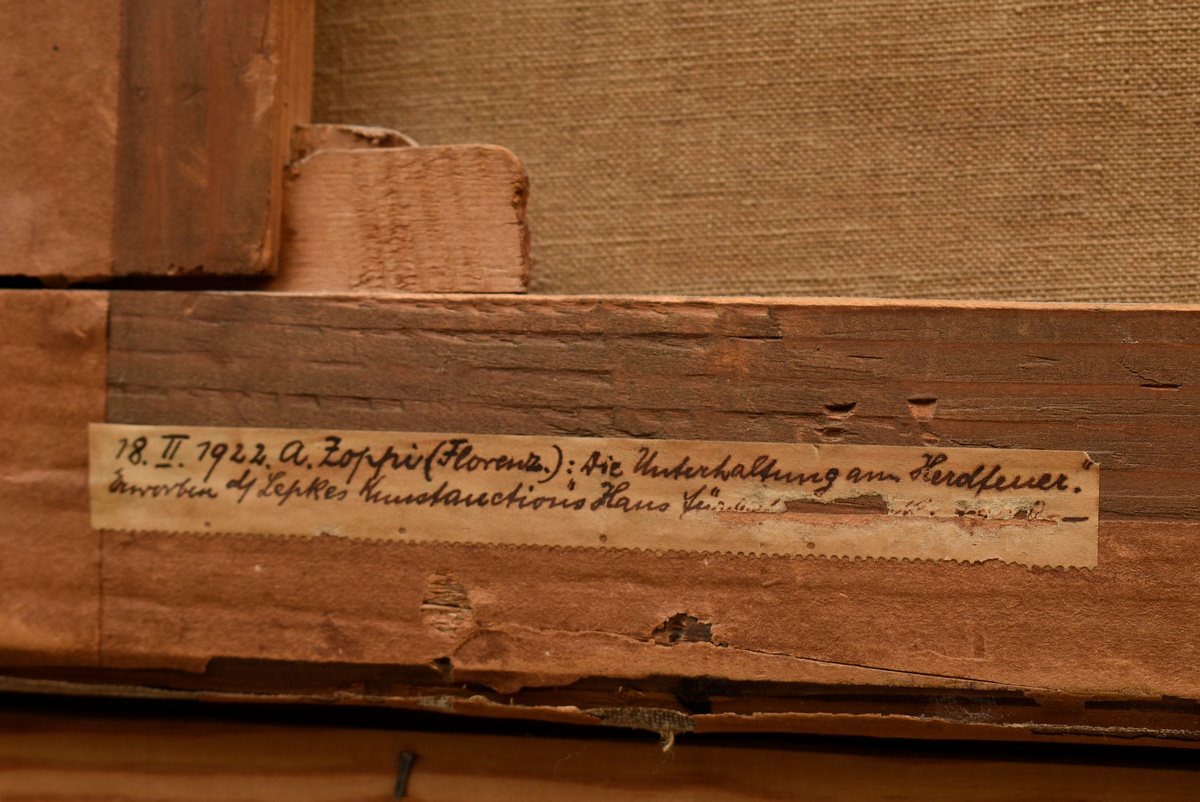 18. II. 1922. A. Zoppi (Florenz.): Die Unterhaltung am Herdfeuer."
Erworben d/ Lepkes Kunstauctions Haus für